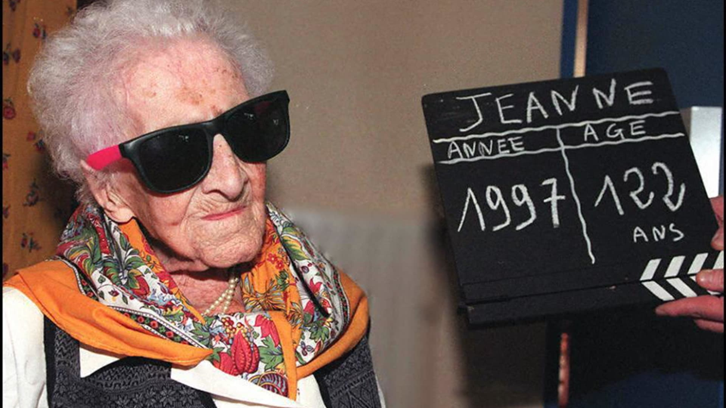 JEANNE
ANNEE AGE
1997 122
ANS